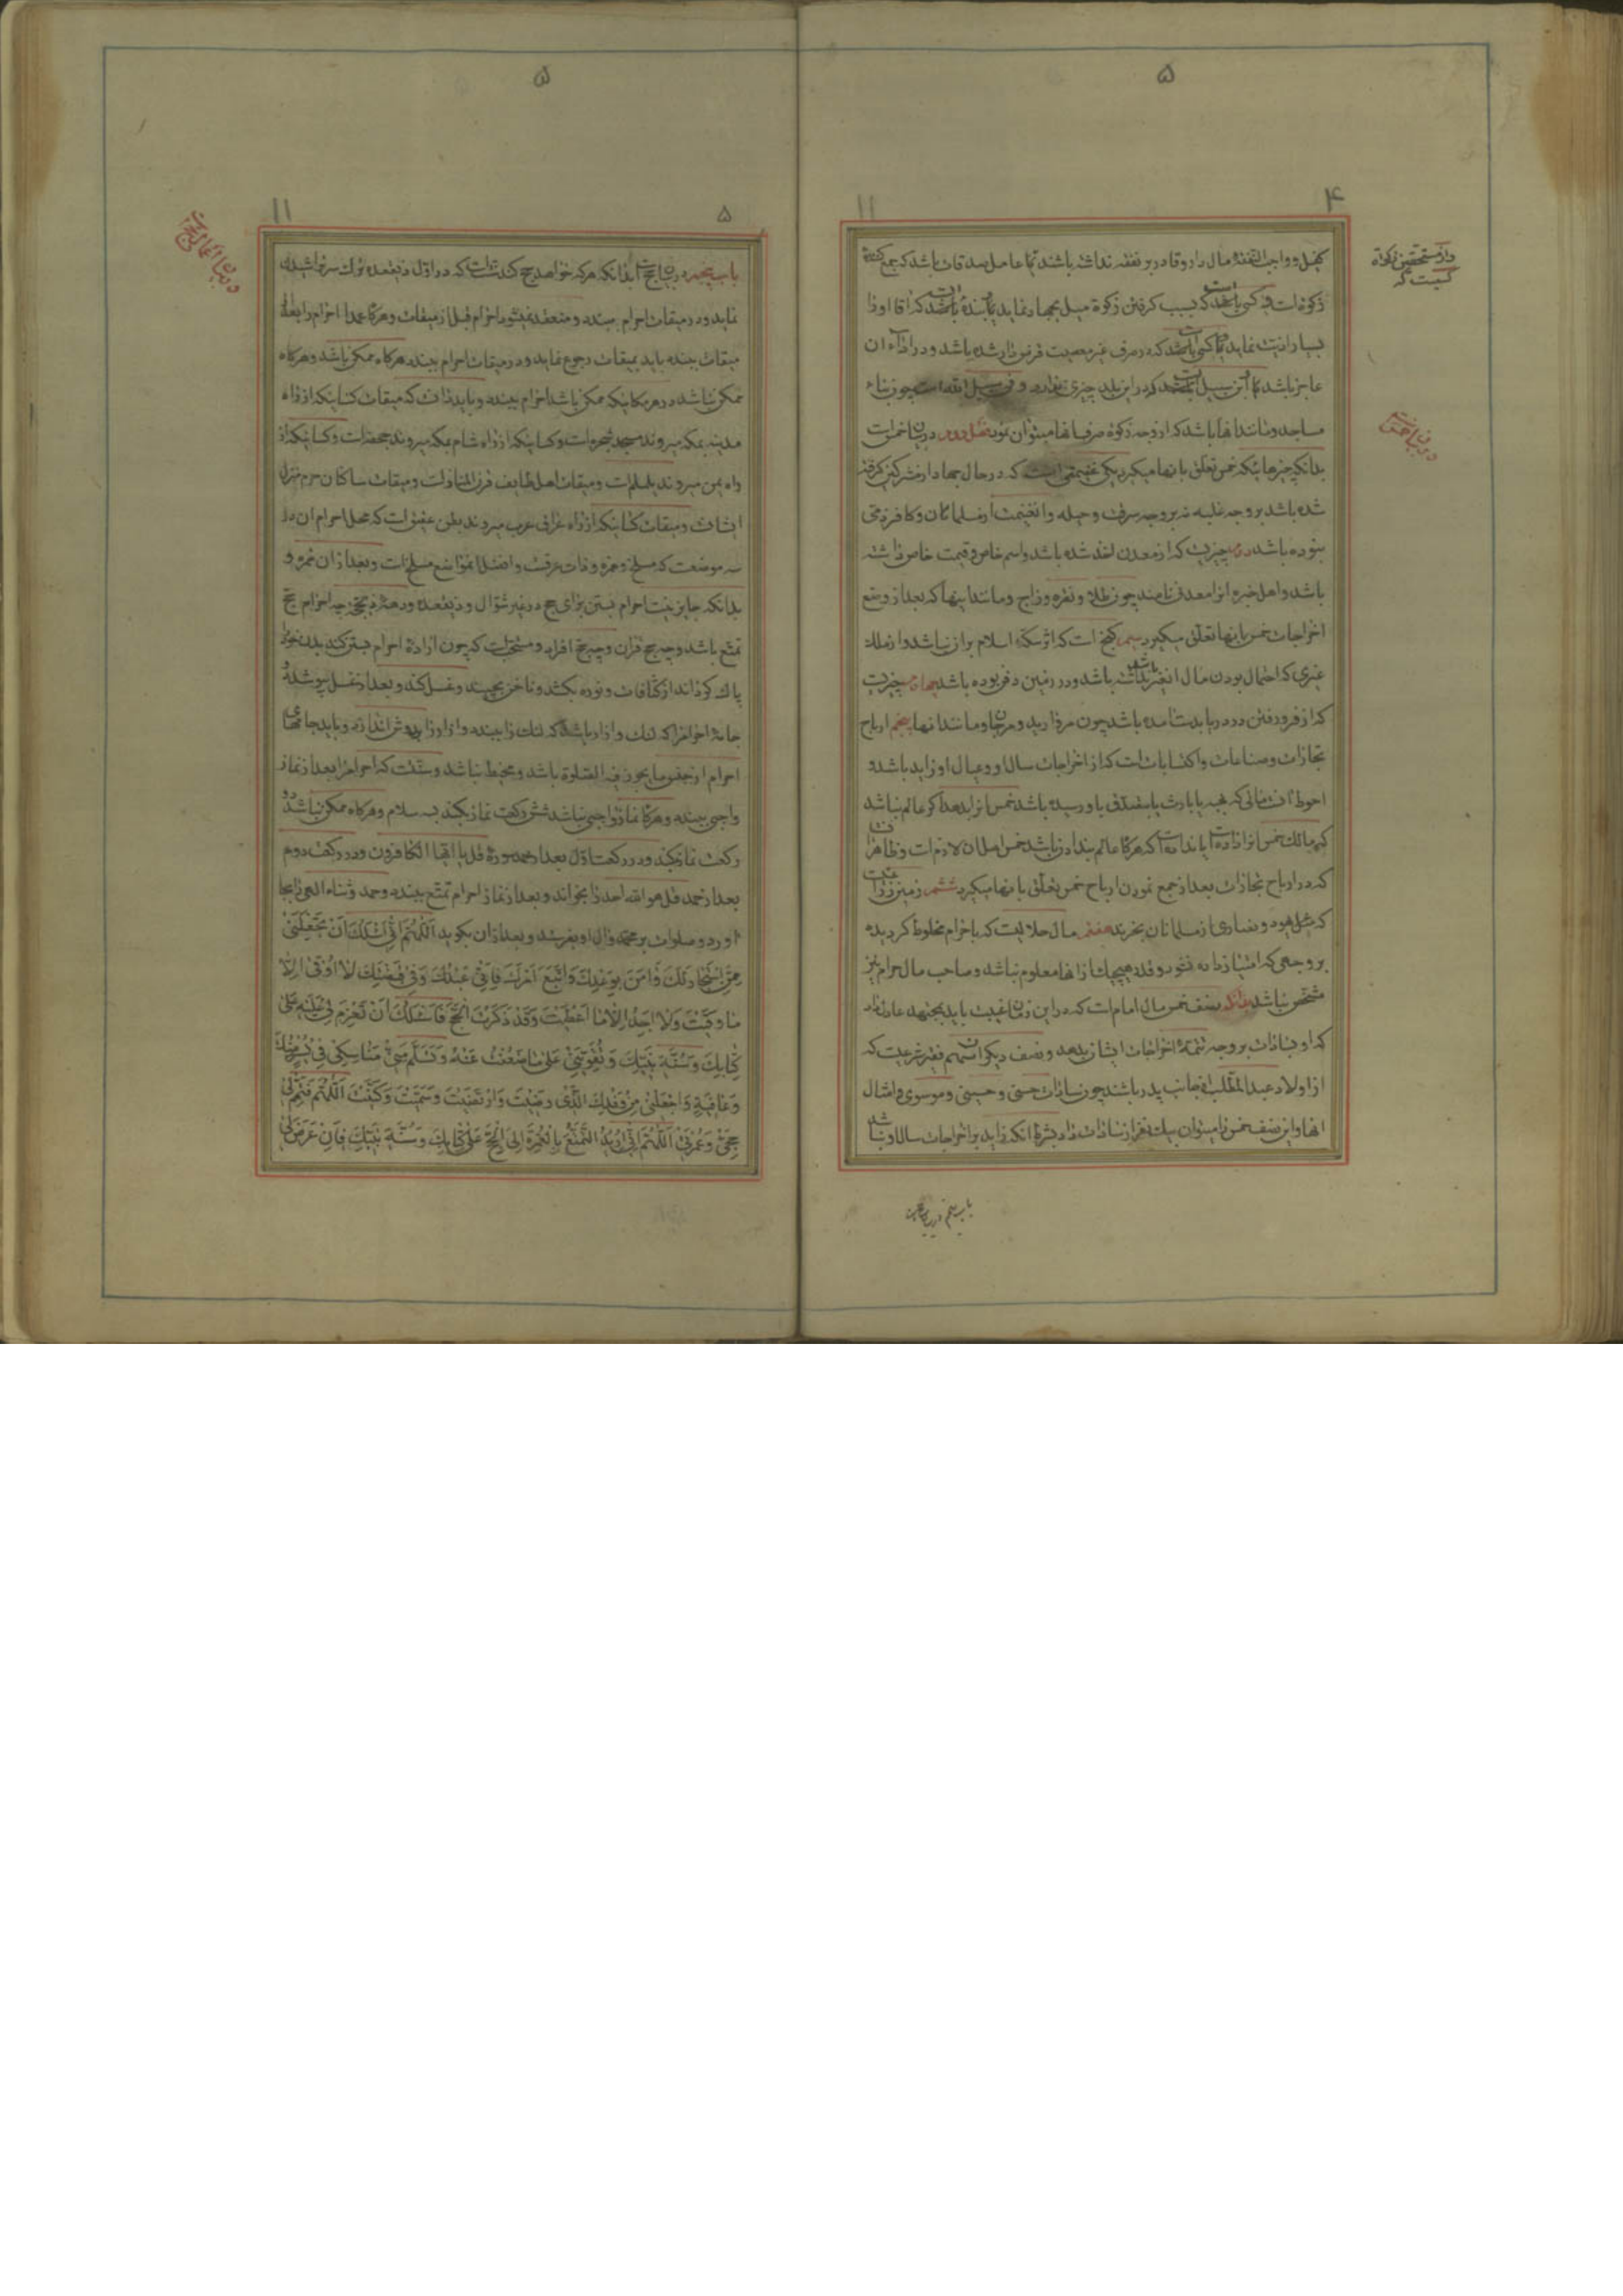 ۵
۴
۱۱
کفیل و واجب النفقهٔ مال دار و قادر بر نفقه نداشته باشند یا عامل صدقات باشد که جمع کنندهٔ
زکوة است و یا کسی باشد که بسبب گرفتن زکوة میل بجهاد نماید یا بندهٔ باشد که آقا او را
بسیار اذیت نماید یا کسی باشد که در صرف غیر معصیت قرض دار شده باشد و در اداء آن
عاجز باشد یا ابن سبیل باشد که در این بلد چیزی ندارد و فی سبیل الله است چون بناء
مساجد و مانند آنها باشد که از وجه زکوة صرف آنها میتوان نمود فصل دوم در بیان خمس است
بدانکه چیزهائیکه خمس تعلق بآنها میگیرد یکی غنیمتی است که در حال جهاد از مشرکین گرفته
شده باشد بر وجه غلبه نه بر وجه سرقت و حیله و آن غنیمت از مسلمانان و کافر ذمی
نبوده باشد دوم چیزیست که از معدن اخذ شده باشد و اسم خاص و قیمت خاص داشته
باشد و اهل خبره آنرا معدنی نامند چون طلا و نقره و زاج و مانند اینها که بعد از وضع
اخراجات خمس باینها تعلق میگیرد سیم گنج است که اثر سکهٔ اسلام بر آن نباشد و از ملک
غیری که احتمال بودن مال آن غیر نداشته باشد و در زمین دفن بوده باشد چهارم چیزیست
که از فرو رفتن در دریا بدست آمده باشد چون مروارید و مرجان و مانند آنها پنجم ارباح
تجارات و صناعات و اکتسابات است که از اخراجات سال او و عیال او زاید باشد و
احوط آنست مالی که بهبه یا بارث یا بصدقه باو رسیده باشد خمس آنرا بدهد اگر عالم نباشد
که مالک خمس آنرا داده است یا نداده است اما هرگاه عالم بندادن باشد خمس اصل آن لازم است و ظاهر آنست
که در ارباح تجارات بعد از جمع نمودن ارباح خمس تعلق بآنها میگیرد ششم زمین زراعت است
که مثل یهود و نصاری از مسلمانان بخرند هفتم مال حلالیست که با حرام مخلوط گردیده
بر وجهی که امتیاز داده نشود و قدر هیچیک از آنها معلوم نباشد و صاحب مال حرام نیز
مشخص نباشد بدانکه نصف خمس مال امام است که در این زمان غیبت باید بمجتهد عادل داد
که او بسادات بر وجه تتمهٔ اخراجات ایشان بدهد و نصف دیگر آن سهم فقیر شرعیست که
از اولاد عبدالمطلب از جانب پدر باشند چون سادات حسنی و حسینی و موسوی و امثال
آنها و این نصف خمس را میتوان بیک نفر از سادات داد بشرط آنکه زاید بر اخراجات سال او نباشد
باب پنجم در بیان حج
در مستحقین زکوة
کیست که
در بیان خمس
۵
۵
۱۱
باب پنجم در بیان حج است بدانکه هرکه خواهد حج کند سنت است که در اول ذیقعده ترک سر تراشیدن
نماید و در میقات احرام ببندد و منعقد نمیشود احرام قبل از میقات و هرگاه عمدا احرام را بعد از
میقات ببندد باید بمیقات رجوع نماید و در میقات احرام ببندد هرگاه ممکن باشد و هرگاه
ممکن نباشد در هر مکانیکه ممکن باشد احرام ببندد و باید دانست که میقات کسانیکه از راه
مدینه بمکه میروند مسجد شجره است و کسانیکه از راه شام بمکه میروند جحفه است و کسانیکه از
راه یمن میروند یلملم است و میقات اهل طایف قرن المنازل است و میقات ساکنان حرم منزل
ایشانست و میقات کسانیکه از راه عراق عرب میروند بطن عقیق است که محل احرام آن در
سه موضعست که مسلخ و غمره و ذات عرقست و افضل آنمواضع مسلخ است و بعد از آن غمره و
بدانکه جایز نیست احرام بستن برای حج در غیر شوال و ذیقعده و دههٔ ذیحجه چه احرام حج
تمتع باشد و چه حج قران و چه حج افراد و مستحب است که چون ارادهٔ احرام بستن کند بدن خود را
پاک گرداند از کثافات و نوره بکشد و ناخن بچیند و غسل کند و بعد از غسل بپوشد دو
جامهٔ احرام را که لنگ و ازار باشد که لنگ را ببندد و ازار را بدوش اندازد و باید جامهای
احرام از جنس ما یجوز فیه الصلوة باشد و مخیط نباشد و سنت است که احرام را بعد از نماز
واجبی ببندد و هرگاه نماز واجبی نباشد شش رکعت نماز بکند بسه سلام و هرگاه ممکن نباشد دو
رکعت نماز بکند و در رکعت اول بعد از حمد سورهٔ قل یا ایها الکافرون و در رکعت دوم
بعد از حمد قل هو الله احد را بخواند و بعد از نماز احرام تمتع ببندد و حمد و ثناء الهی را بجا
آورد و صلوات بر محمد و آل او بفرستد و بعد از آن بگوید اَللّٰهُمَّ اِنّی اَسْئَلُکَ اَنْ تَجْعَلَنی
مِمَّنِ اسْتَجابَ لَکَ وَ امَنَ بِوَعْدِکَ وَ اتَّبَعَ اَمْرَکَ فَاِنّی عَبْدُکَ وَ فی قَبْضَتِکَ لا اُوقی اِلّا
ما وَقَیْتَ وَ لا اَجِدُ اِلّا ما اَعْطَیْتَ وَ قَدْ ذَکَرْتَ الْحَجَّ فَاَسْئَلُکَ اَنْ تَعْزِمَ لی عَلَیْهِ عَلی
کِتابِکَ وَ سُنَّةِ نَبِیِّکَ وَ تُقَوِّیَنی عَلی ما ضَعُفْتُ عَنْهُ وَ تَسَلَّمَ مِنّی مَناسِکی فی یُسْرٍ مِنْکَ
وَ عافِیَةٍ وَ اجْعَلْنی مِنْ وَفْدِکَ الَّذی رَضِیتَ وَ ارْتَضَیْتَ وَ سَمَّیْتَ وَ کَتَبْتَ اَللّٰهُمَّ فَتَمِّمْ لی
حَجّی وَ عُمْرَتی اَللّٰهُمَّ اِنّی اُریدُ التَّمَتُّعَ بِالْعُمْرَةِ اِلَی الْحَجِّ عَلی کِتابِکَ وَ سُنَّةِ نَبِیِّکَ فَاِنْ عَرَضَ لی
در بیان اعمال حج